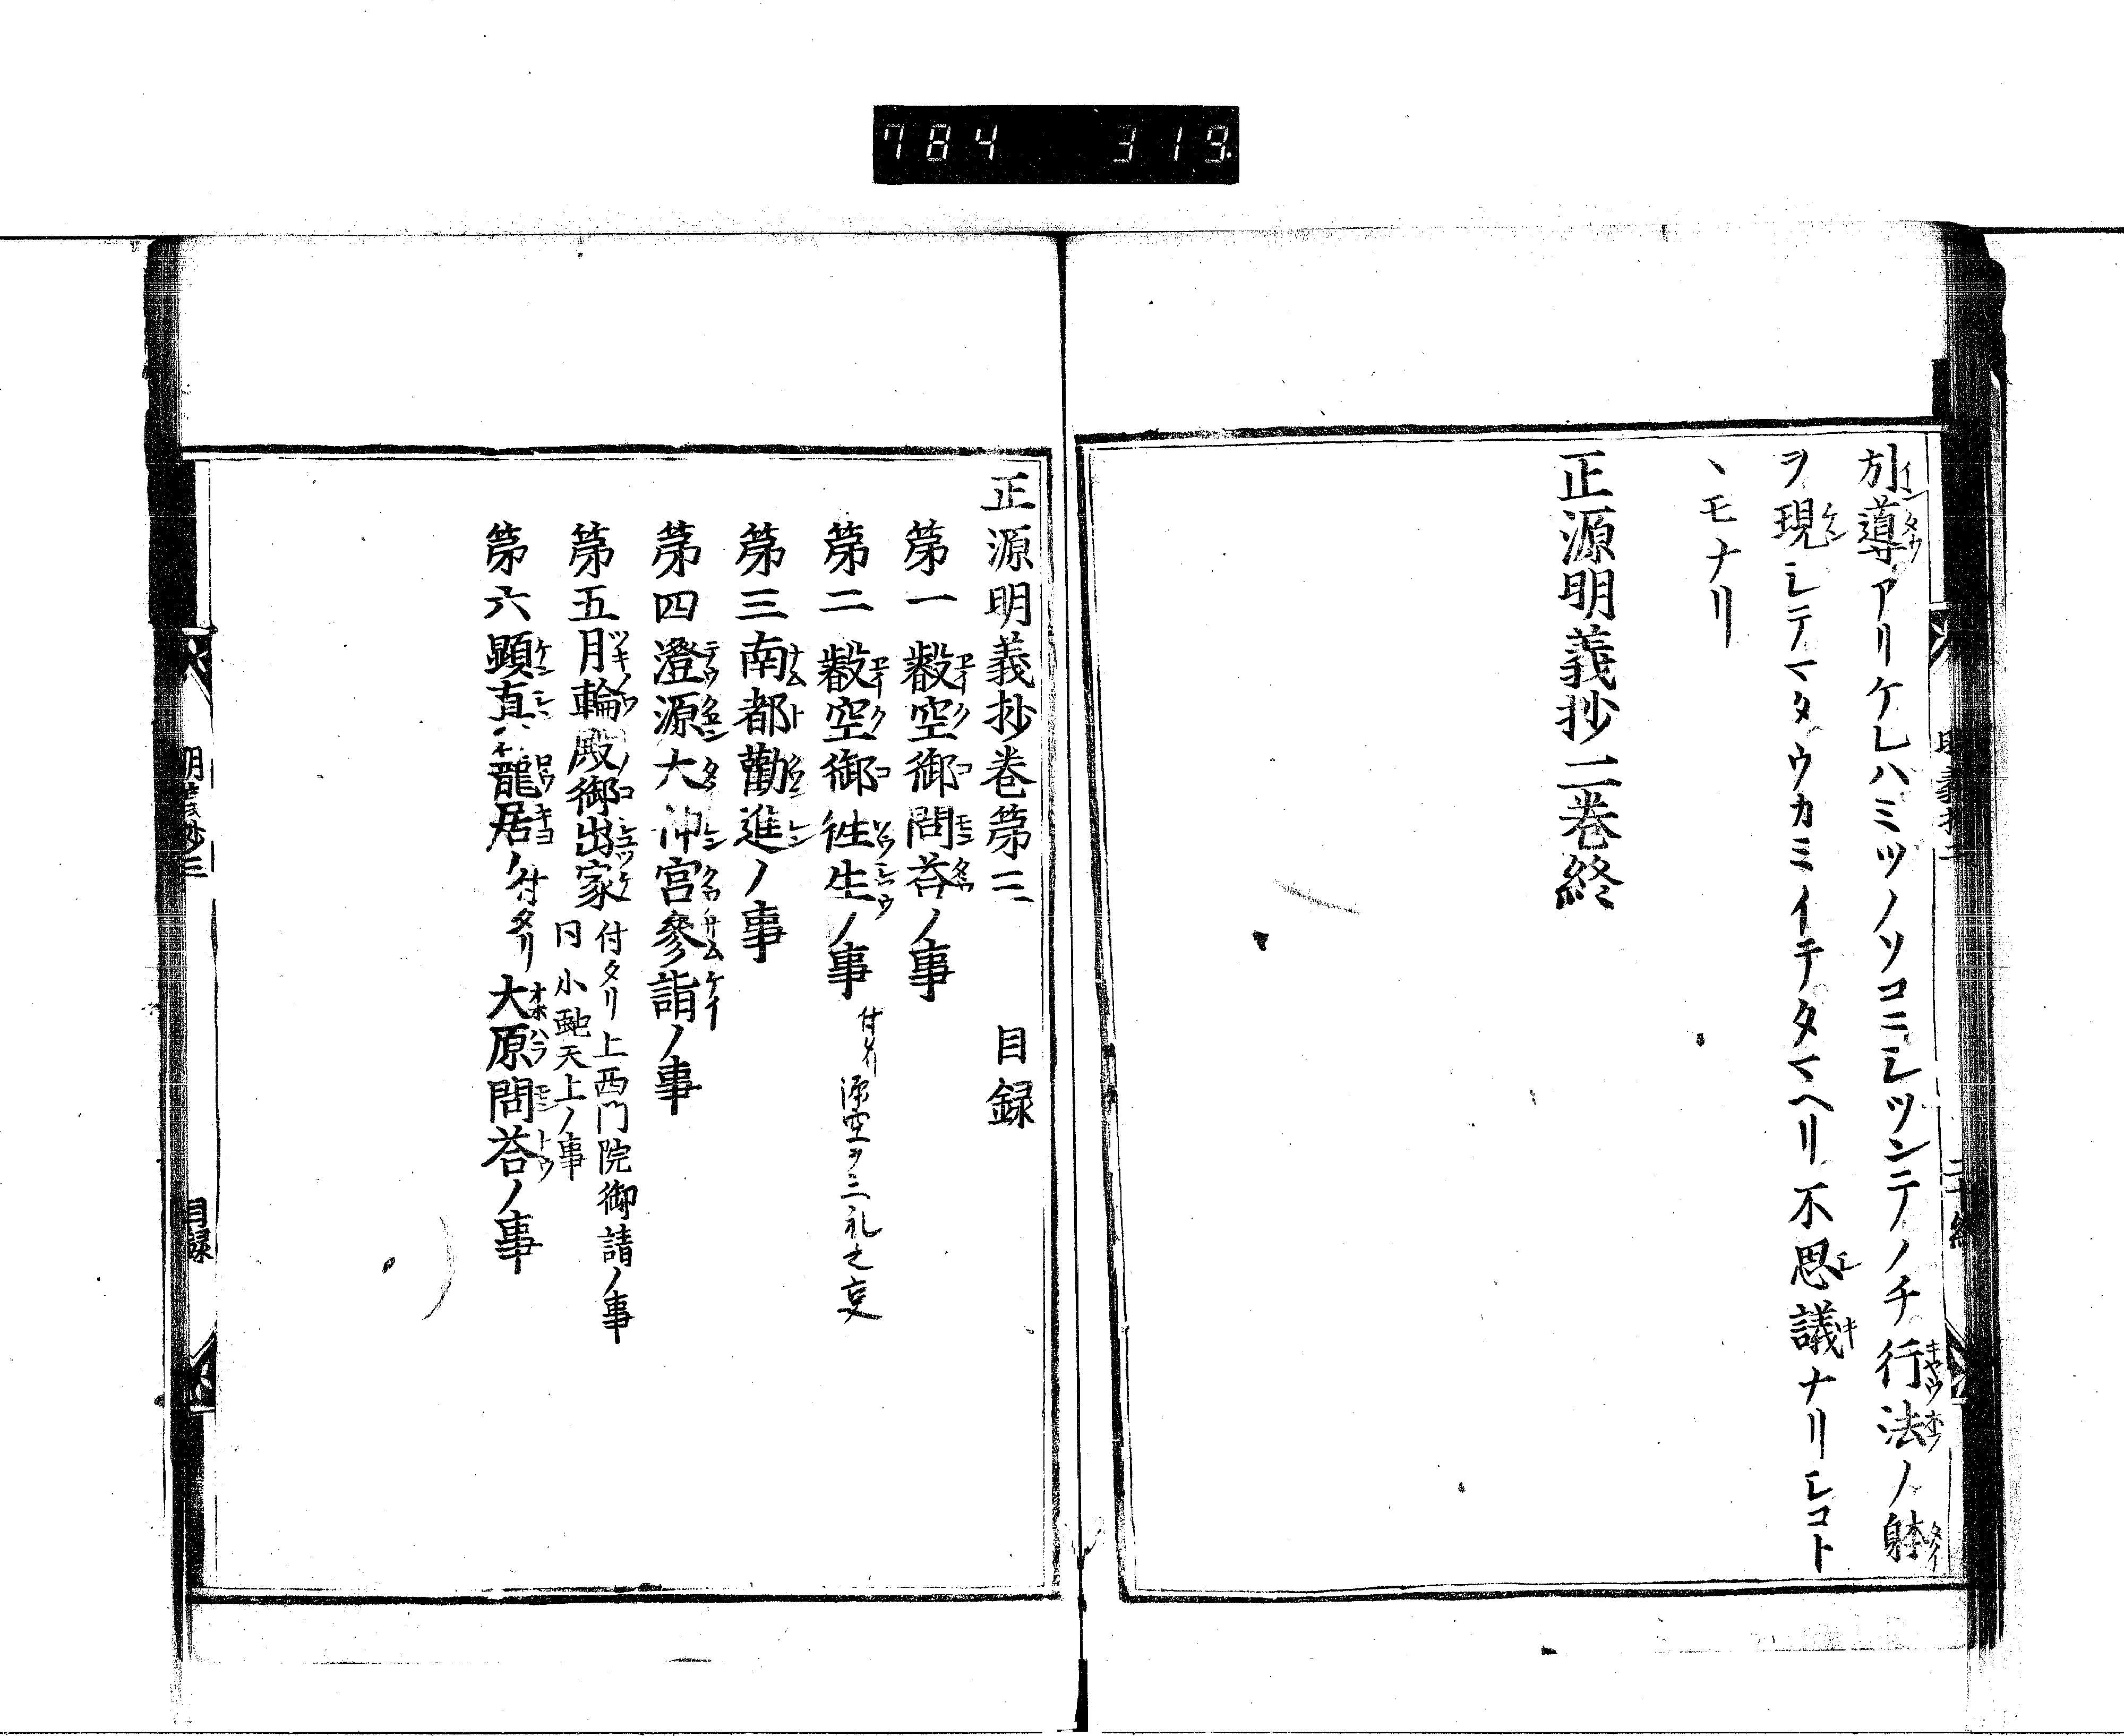 784 319
引導アリケレハミツノソコニシツンテノチ行法ノ躰
ヲ現シテマタウカミイテタマヘリ不思議ナリシコト
ヽモナリ
正源明義抄二巻終
正源明義抄巻第三 目録
第一 叡空御問答ノ事
第二 叡空御往生ノ事 付タリ源空ヲ三礼之㕝
第三南都勸進ノ事
第四澄源大神宮參詣ノ事
第五月輪殿御出家 付タリ上西門院御請ノ事
同小虵天上ノ事
第六顕真篭居ノ付タリ大原問答ノ事
明義抄三 目録